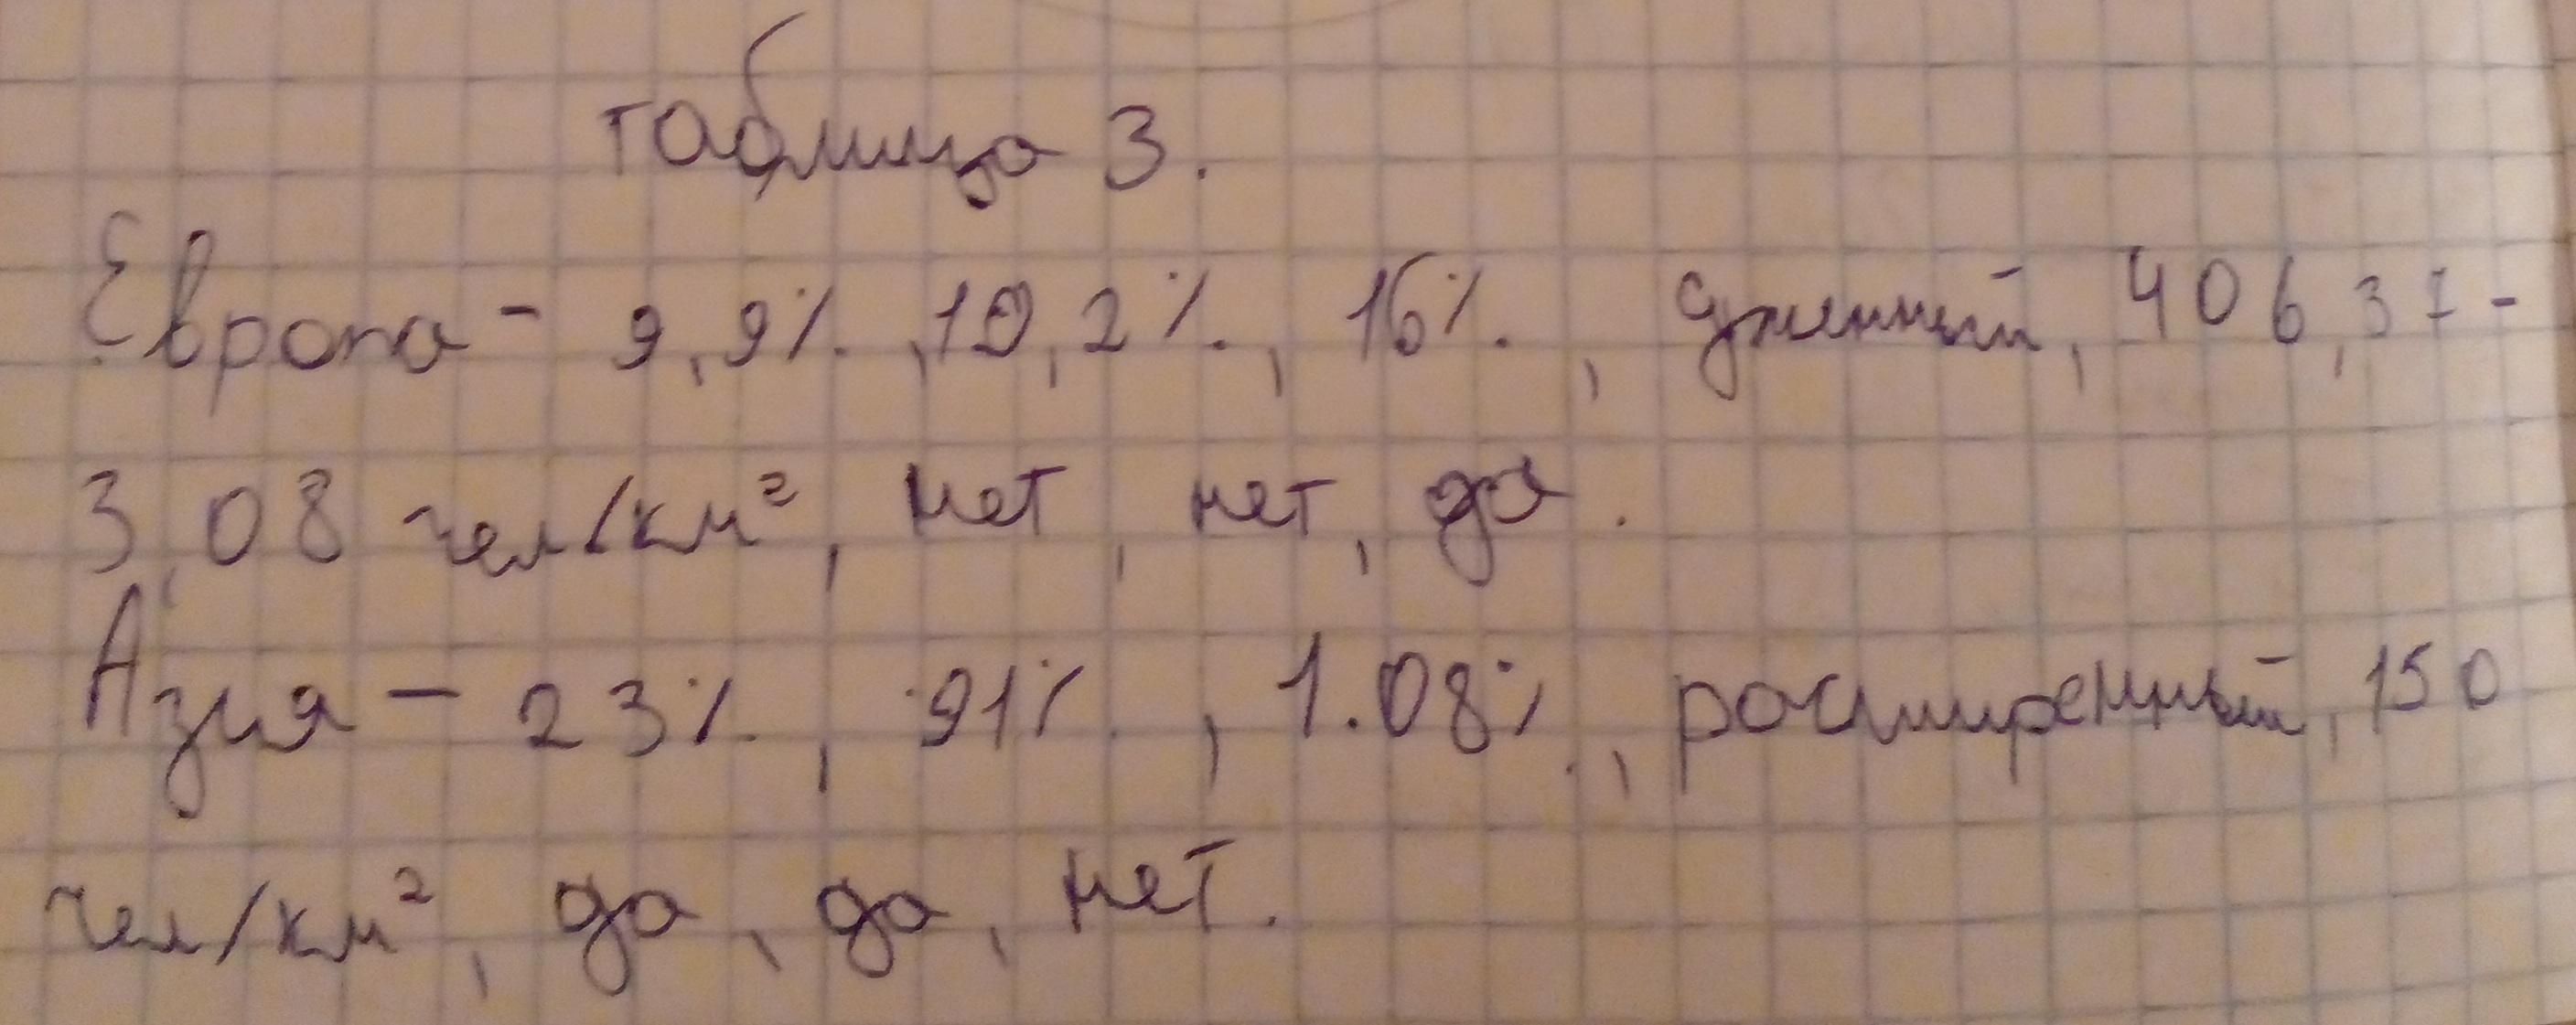 таблица 3.
Европа - 9,9%, 10,2%, 16%, суженный, 406,37-
3,08 чел/км², нет, нет, да.
Азия - 23%, 91%, 1.08%, расширенный, 150
чел/км², да, да, нет.